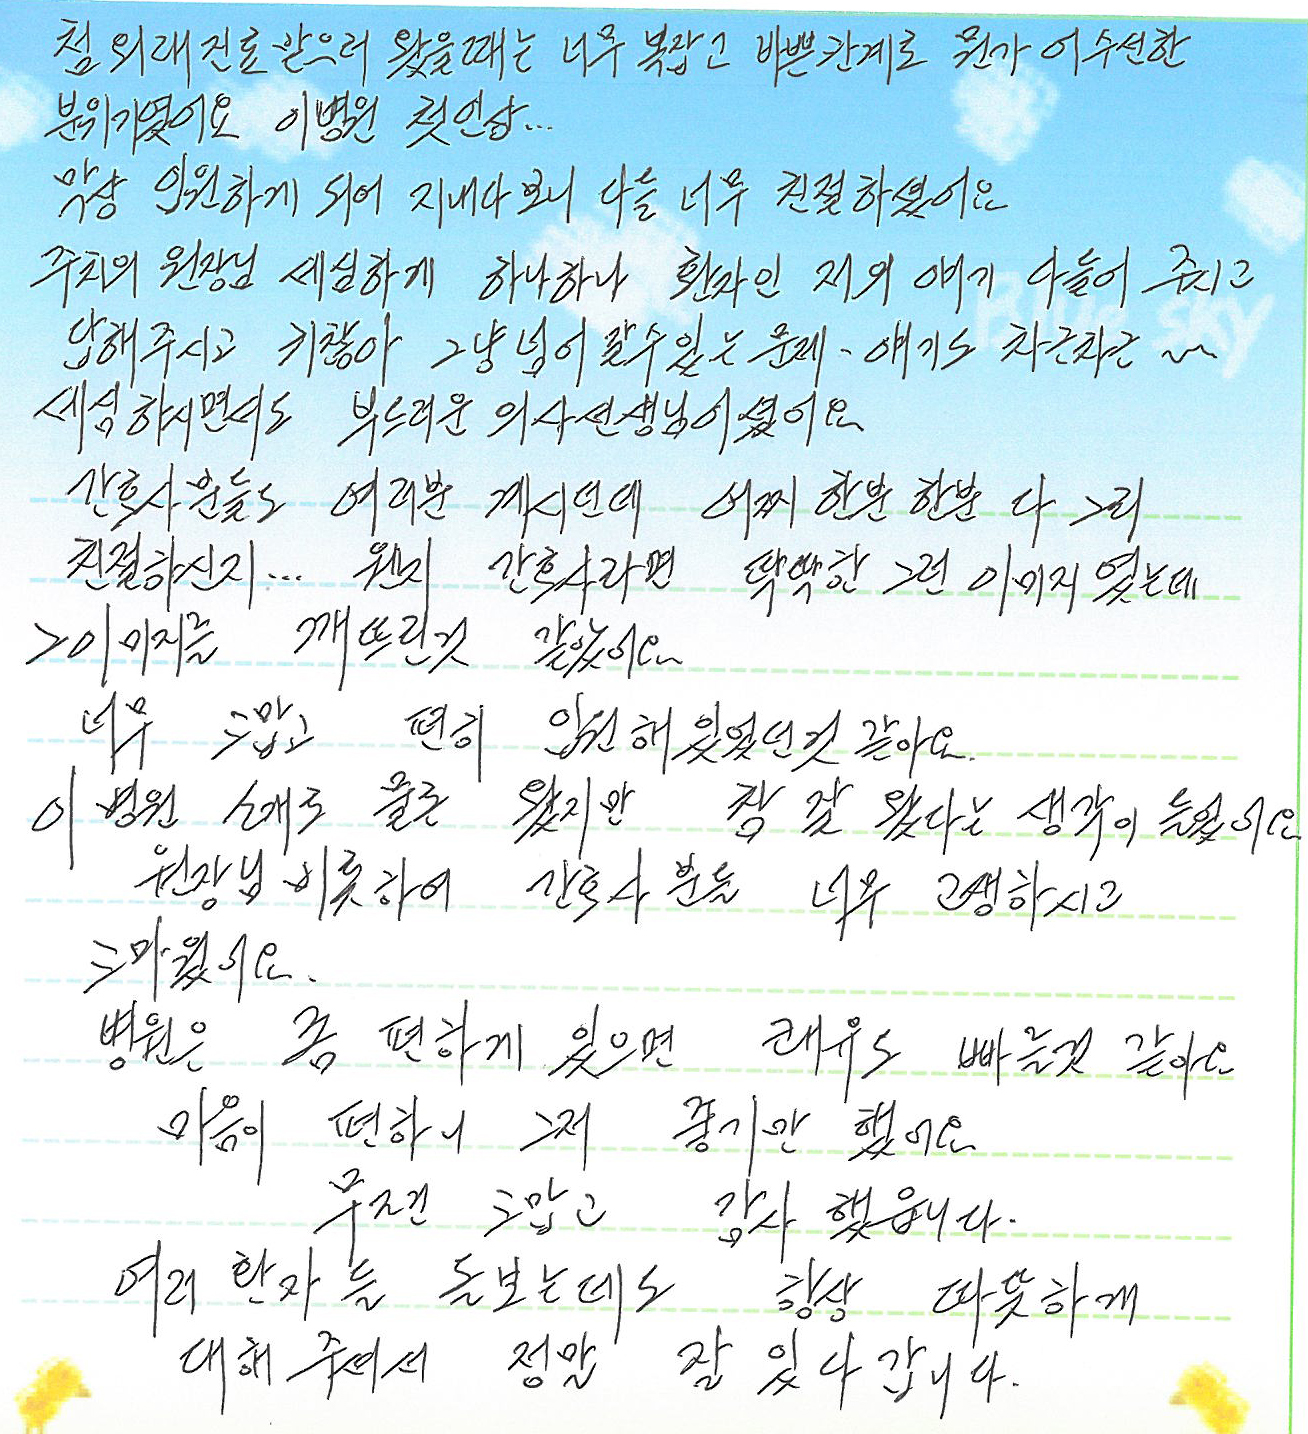 첨 외래진료 받으러 왔을때는 너무 복잡고 바쁜관계로 뭔가 어수선한
분위기였어요 이병원 첫인상...
막상 입원하게 되어 지내다보니 다들 너무 친절하셨어요
주치의 원장님 세심하게 하나하나 환자인 저의 얘기 다들어 주시고
답해주시고 귀찮아 그냥 넘어갈수있는 문제. 얘기도 차근차근 ~~
세심하시면서도 부드러운 의사선생님이셨어요
간호사분들도 여러분 계시던데 어찌 한분 한분 다 그리
친절하신지... 왠지 간호사라면 딱딱한 그런 이미지였는데
그이미지를 깨뜨린것 같았어요
너무 고맙고 편히 입원해있었던것 같아요.
이 병원 소개로 물론 왔지만 참 잘 왔다는 생각이 들었어요
원장님 비롯하여 간호사 분들 너무 고생하시고
고마웠어요.
병원은 좀 편하게 있으면 쾌유도 빠를것 같아요
마음이 편하니 그저 좋기만 했어요
무조건 고맙고 감사 했읍니다.
여러 환자들 돌보는데도 항상 따뜻하게
대해 주셔서 정말 잘 있다 갑니다.
Blue sky